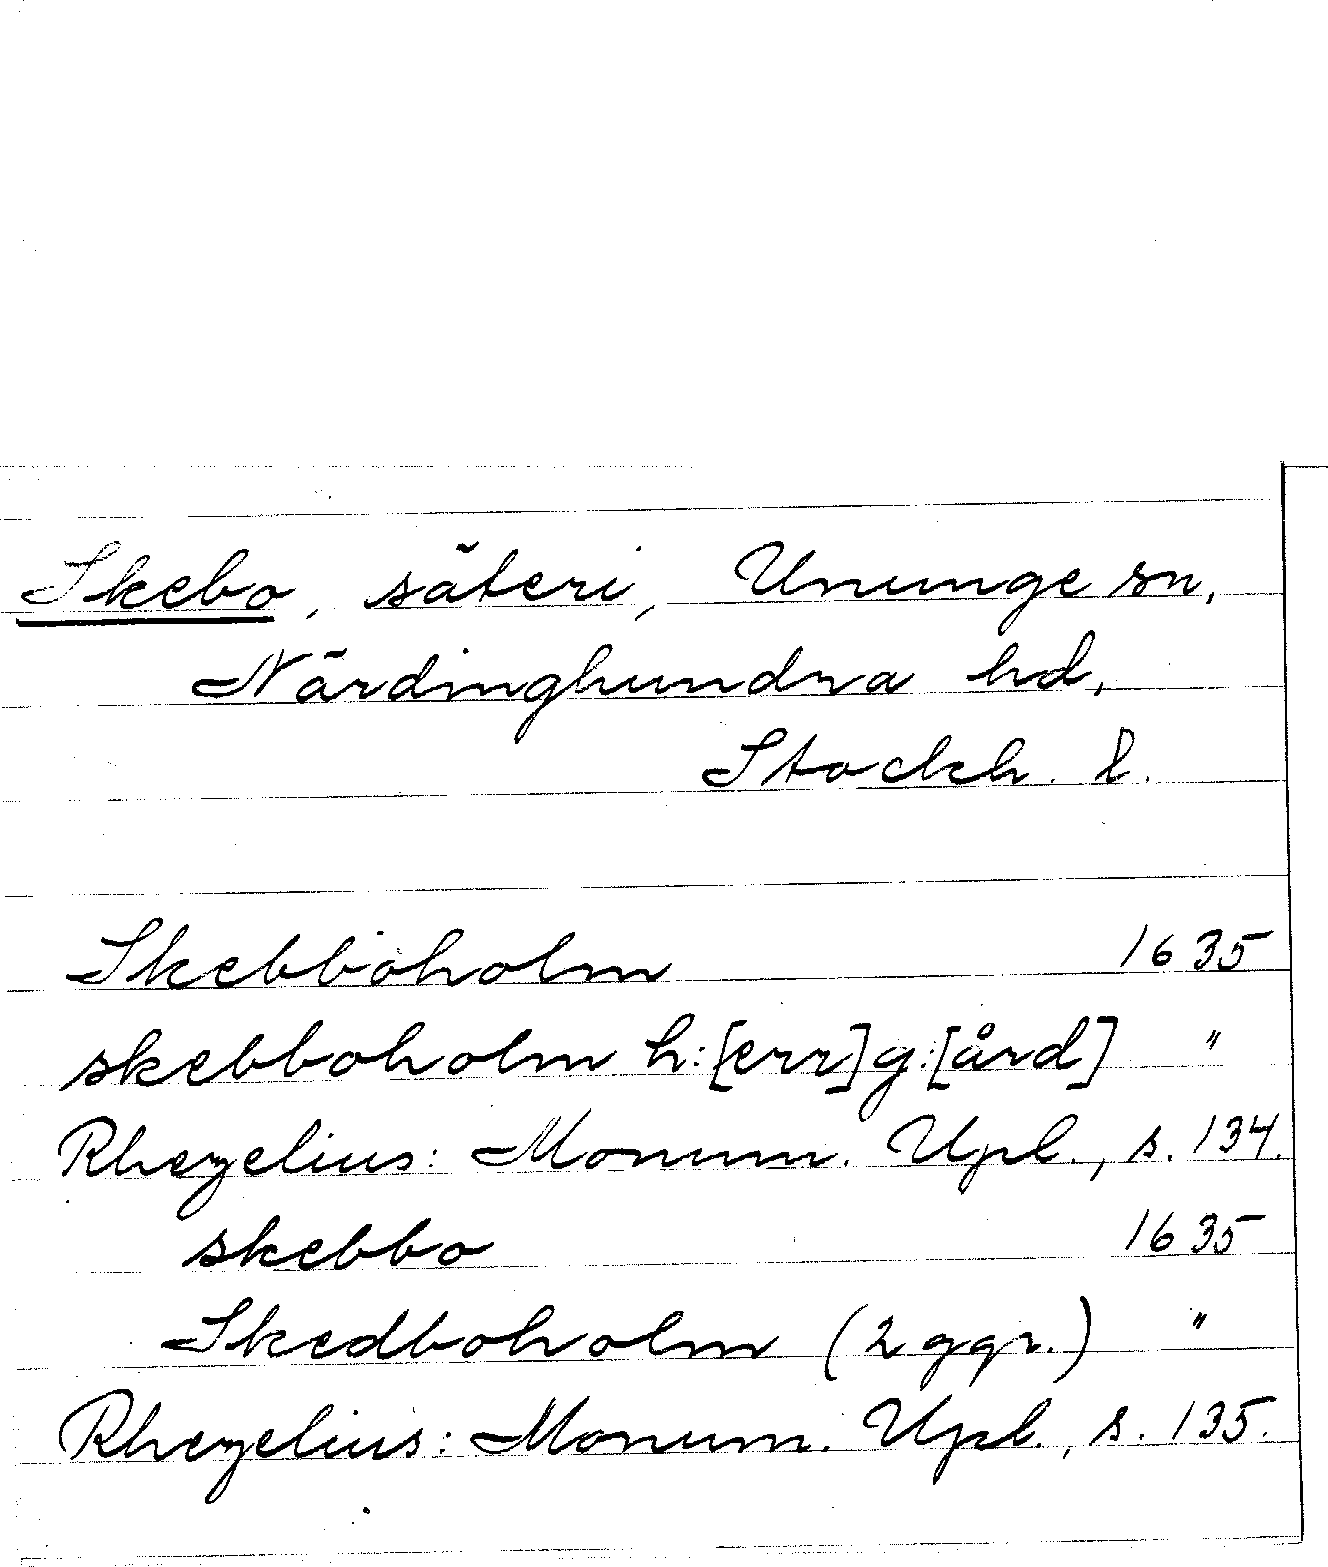 Skebo, säteri, Ununge sn,
Närdinghundra hd,
Stockh. l.
Skebboholm 1635
skebboholm h:[err]g:[ård] "
Rhezelius: Monum. Upl., s. 134.
skebbo 1635
Skedboholm (2 ggr.) "
Rhezelius: Monum. Upl., s. 135.